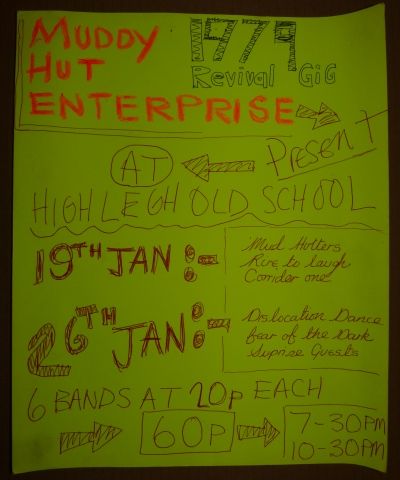 MUDDY
HUT
ENTERPRISE
1979
Revival GiG
PRESENT
AT
HIGH LEGH OLD SCHOOL
19TH JAN :-
Mud Hutters
Rire to laugh
Corrider one
26TH JAN :-
Dislocation Dance
fear of the Dark
Suprise Guests
6 BANDS AT 20p EACH
60P
7-30PM
10-30AM